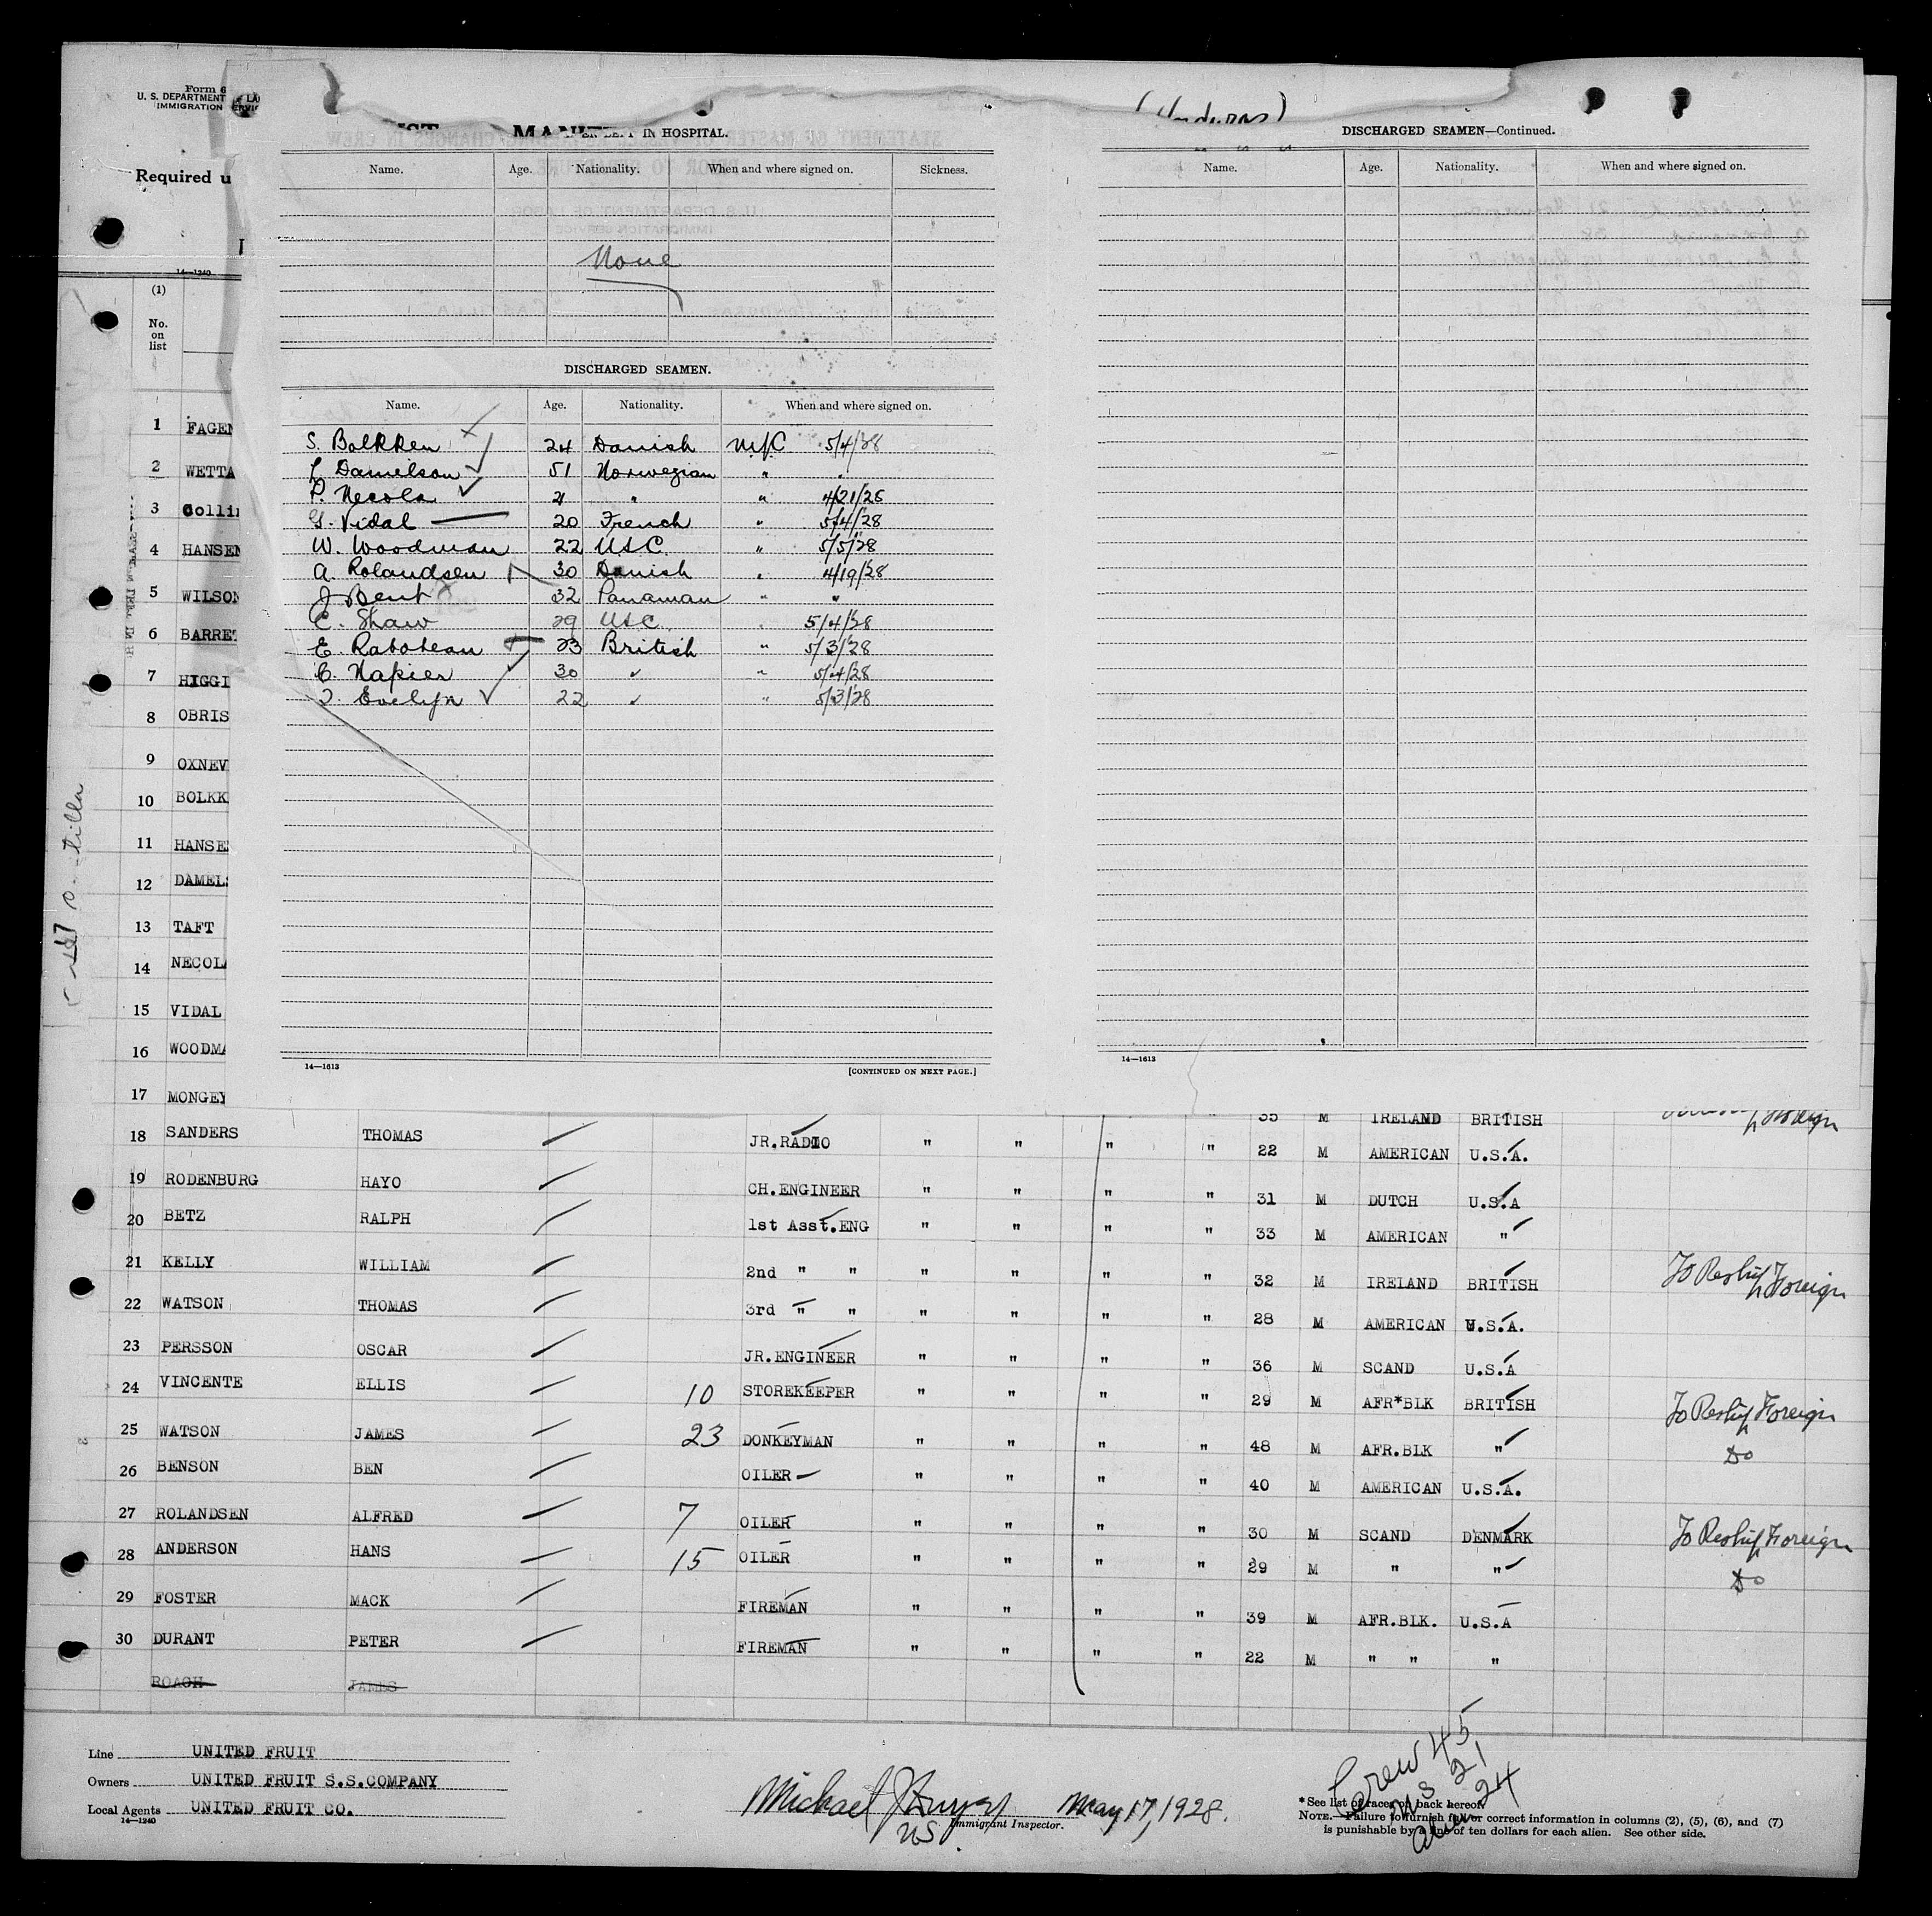 Form 6
U. S. DEPARTMENT
IMMIGRATION
Required u
14—1240
(1)
No. on list
IN HOSPITAL.
Name. Age. Nationality. When and where signed on. Sickness.
None
DISCHARGED SEAMEN.
Name. Age. Nationality. When and where signed on.
S. Bolkken 24 Danish N.Y.C 5/4/28
L Damelson 51 Norwegian "
P. Necola 21 " " 4/21/28
G. Vidal 20 French " 5/4/28
W. Woodman 22 USC. " 5/5/28
A. Rolandsen 30 Danish " 4/19/28
J Bent 32 Panaman " "
C. Shaw 29 USC. " 5/4/28
E. Raboteau 23 British " 5/3/28
C. Napier 30 " " 5/4/28
I. Evelyn 22 " " 5/3/28
14—1613
[CONTINUED ON NEXT PAGE.]
(Honduras)
DISCHARGED SEAMEN—Continued.
Name. Age. Nationality. When and where signed on.
14—1613
1 FAGEN
2 WETTA
3 Colli
4 HANSEN
5 WILSON
6 BARRET
7 HIGGI
8 OBRIS
9 OXNEV
10 BOLKK
11 HANSE
12 DAMELS
13 TAFT
14 NECOLA
15 VIDAL
16 WOODMA
17 MONGEY 35 M IRELAND BRITISH
18 SANDERS THOMAS JR.RADIO " " " " 22 M AMERICAN U.S.A.
19 RODENBURG HAYO CH.ENGINEER " " " " 31 M DUTCH U.S.A
20 BETZ RALPH 1st Asst.ENG " " " " 33 M AMERICAN "
21 KELLY WILLIAM 2nd " " " " " " 32 M IRELAND BRITISH To Reship Foreign
22 WATSON THOMAS 3rd " " " " " " 28 M AMERICAN U.S.A.
23 PERSSON OSCAR JR.ENGINEER " " " " 36 M SCAND U.S.A
24 VINCENTE ELLIS 10 STOREKEEPER " " " " 29 M AFR*BLK BRITISH To Reship Foreign
25 WATSON JAMES 23 DONKEYMAN " " " " 48 M AFR.BLK " Do
26 BENSON BEN OILER " " " " 40 M AMERICAN U.S.A.
27 ROLANDSEN ALFRED 7 OILER " " " " 30 M SCAND DENMARK To Reship Foreign
28 ANDERSON HANS 15 OILER " " " " 29 M " " Do
29 FOSTER MACK FIREMAN " " " " 39 M AFR.BLK. U.S.A
30 DURANT PETER FIREMAN " " " " 22 M " " "
ROACH JAMES
Line UNITED FRUIT
Owners UNITED FRUIT S.S.COMPANY
Local Agents UNITED FRUIT CO.
14—1240
Michael J May 17, 1928.
US Immigrant Inspector.
Crew 45
US 21
Alien 24
*See list of races on back hereof.
NOTE.—Failure to furnish full or correct information in columns (2), (5), (6), and (7)
is punishable by a fine of ten dollars for each alien. See other side.